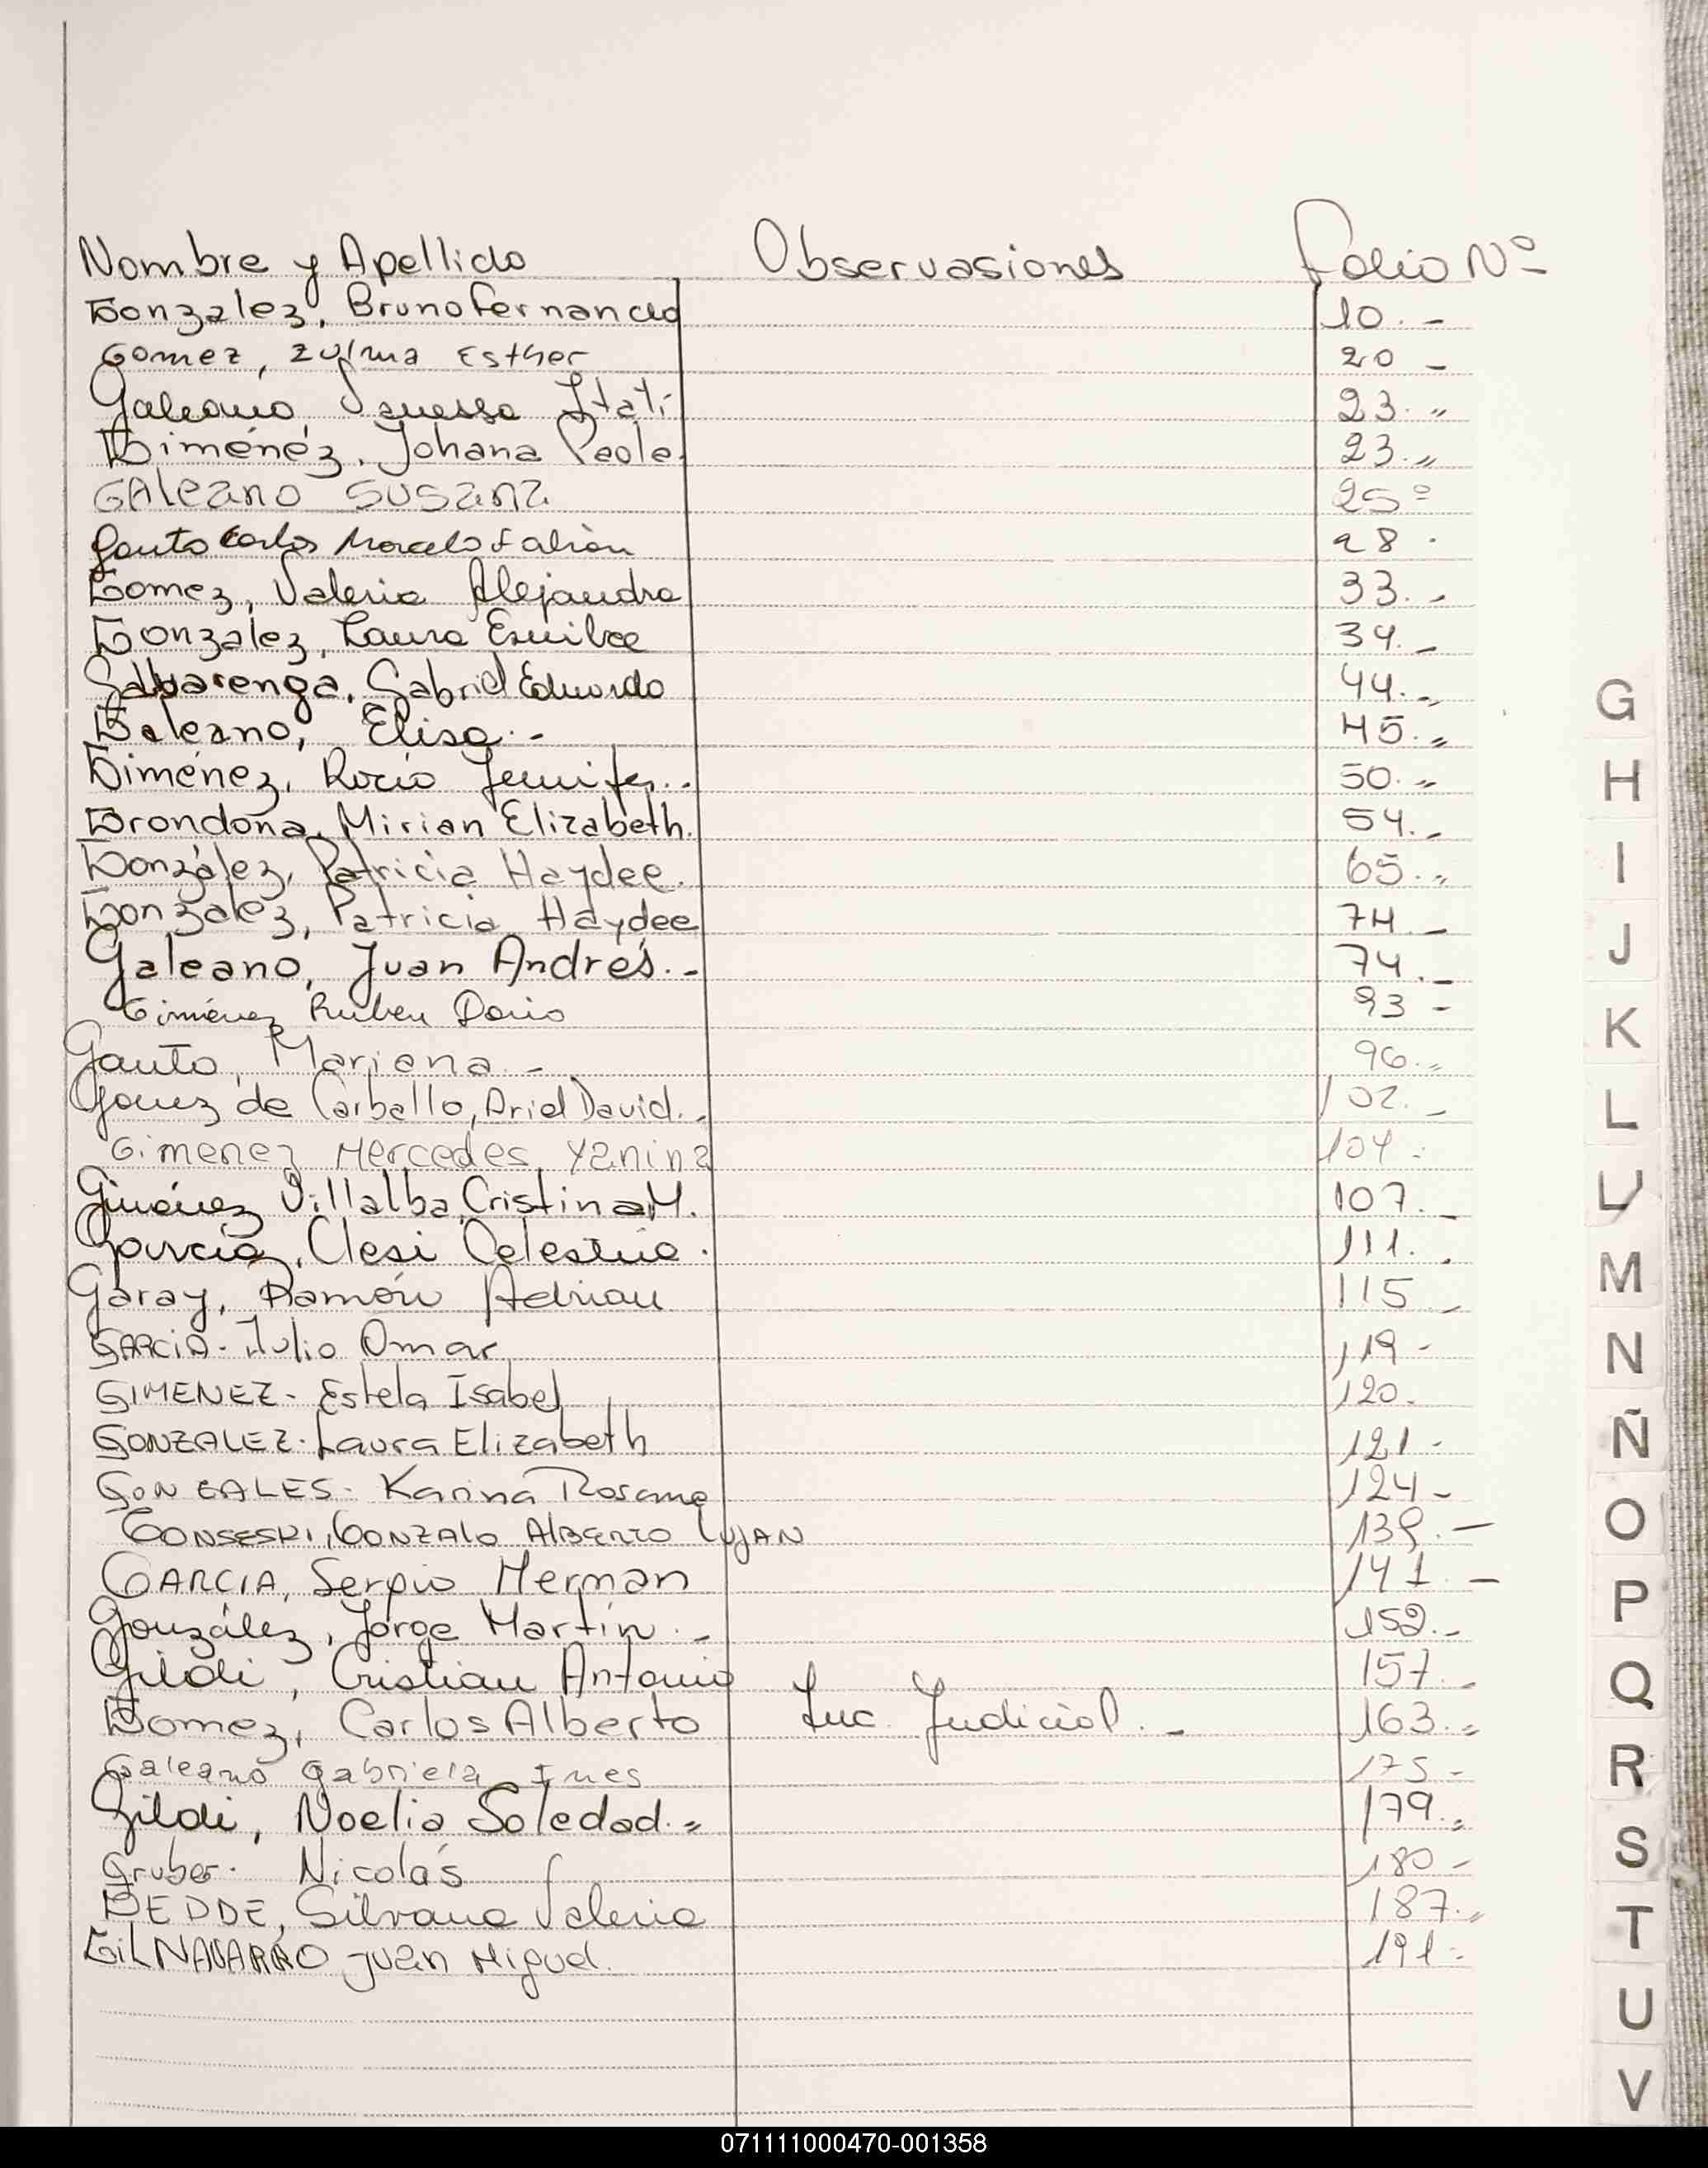 Nombre y Apellido Observasiones Folio Nº
Gonzalez, Bruno Fernando 10.-
Gomez, Zulma Esther 20 -
Galeano, Vanessa Itatí 23.,,
Giménez, Johana Paola. 23.,,
GALEANO SUSANA 25º
Gauto Carlos Marcelo Fabián 28.
Gomez, Valeria Alejandra 33.-
Gonzalez, Laura 34.-
Galvarenga, Gabriel Eduardo 44.-
Galeano, Elisa.- 45.,,
Giménez, Rocío Jennifer.. 50.,,
Grondona, Mirian Elizabeth. 54.-
González, Patricia Haydee. 65.,,
Gonzalez, Patricia Haydee 74.-
Galeano, Juan Andrés.- 74.-
Giménez Ruben Dario 93 -
Gauto, Mariana.- 96.,,
Gomez de Carballo, Ariel David.- 102.-
Gimenez Mercedes Yanina 104.-
Giménez Villalba, Cristina M. 107.-
García, Clesi Celestina. 111..
Garay, Ramón Adrian 115 -
GARCIA- Julio Omar 119 -
GIMENEZ- Estela Isabel 120.
GONZALEZ- Laura Elizabeth 121 -
GONZALES- Karina Rosana 124 -
GONSESKI, GONZALO ALBERTO LUJAN 139.-
GARCIA, Sergio Herman 141.-
González, Jorge Martín.- 152.-
Gildi, Cristian Antonio 157.-
Gomez, Carlos Alberto Juc. Judicial.- 163.,,
Galeano Gabriela Ines 175 -
Gildi, Noelia Soledad.,, 179.,,
Gruber. Nicolás 180 -
GEDDE, Silvana Valeria 187.,,
GIL NAVARRO Juan Miguel. 191 -
G
H
I
J
K
L
LL
M
N
Ñ
O
P
Q
R
S
T
U
V
071111000470-001358